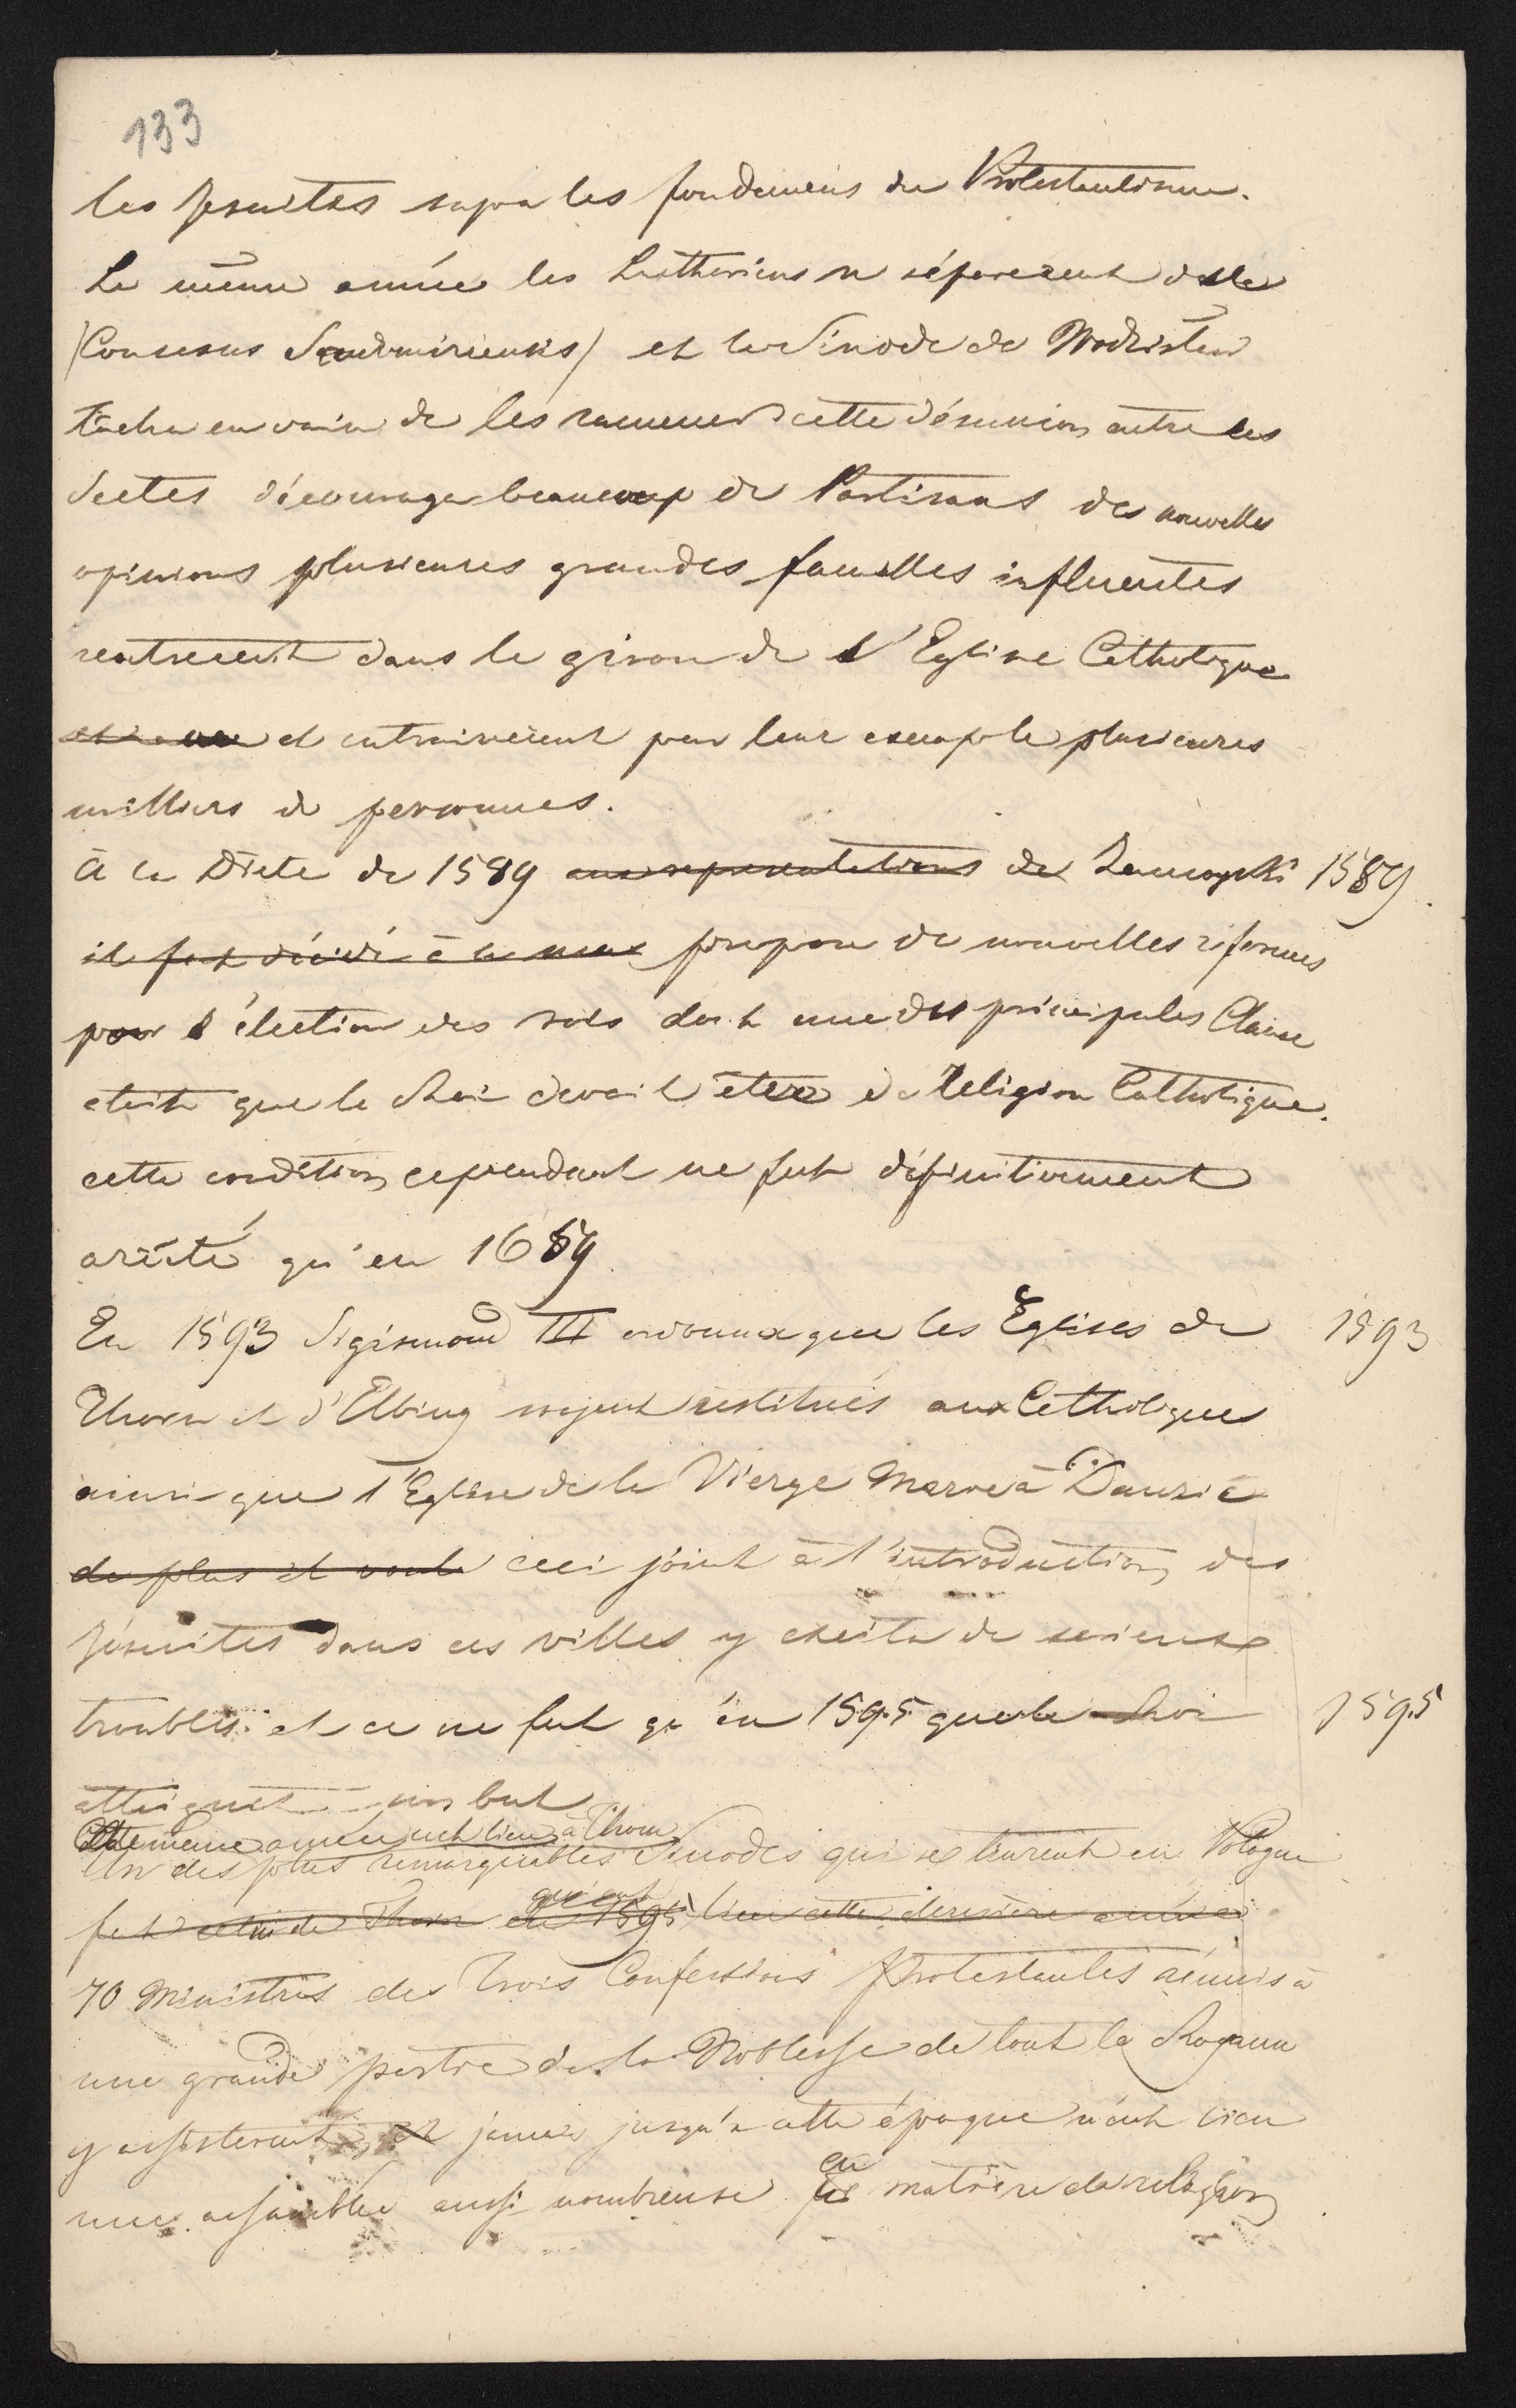 133
les Jesuites sapa les fondemens du Protestantisme.
La même année les Lutheriens se séparerent de la
(Consesus Sendomiriensis) et le Sinode de Wodzislaw
tacha en vain de les ramener cette désunion entre les
Sectes découragea beaucoup de Partisans des nouvelles
opinions plusieures grandes familles influentes
rentrerent dans le giron de l'Eglise Catholique
et entrainèrent par leur exemple plusieures
milliers de personnes.
à la Diete de 1589 aux representations de Zamoyski 1589
il fut décidé à la proposa de nouvelles réformes
pour l'élection des rois dont une des principales Clause
etait que le Roi devait être de religion Catholique.
cette condition cependant ne fut définitivement
arèté qu'en 1669
En 1593 Sigismond III ordonna que les Eglises de 1593
Thorn et d'Elbing soyent restitués aux Catholiques
ainsi que l'Eglise de la Vierge Marie à Danzic
de plus et ceci joint à l'introduction des
Jésuites dans ces villes y excita de serieuse
troubles et ce ne fut qu'en 1595 que le Roi 1595
atteignit son but
Cette meme année eut lieu à Thorn
Un des plus remarquables Sinodes qui se tinrent en Pologne
qui eut
fut celui de Thorn en 1595 lieu cette derniere année
70 Ministres des trois Confessions Protestantes réunis à
une grande partie de la Noblesse de tout le Royaume
y assisterent et jamais jusqu'a cette époque n'eut lieu
en
une assemblée aussi nombreuse matière de religion